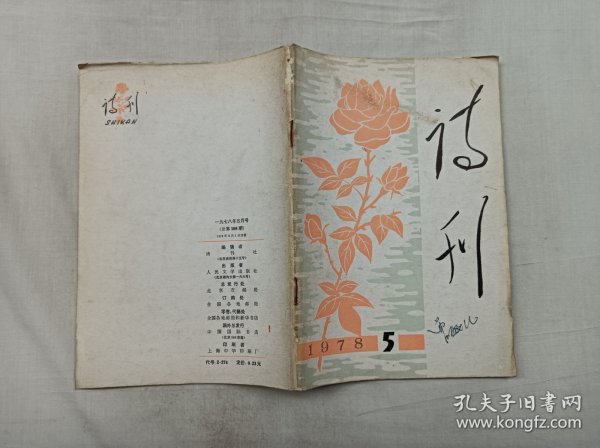 诗刊
SHIKAN
一九七八年五月号
编辑者
诗刊社
出版者
人民文学出版社
总发行处
北京市邮局
订购处
全国各地邮局
零售、代订处
全国各地邮局和新华书店
国外总发行
中国国际书店
印刷者
上海中华印刷厂
代号:2-274 定价:0.23元
诗刊
1978 5
孔夫子旧书网
www.kongfz.com